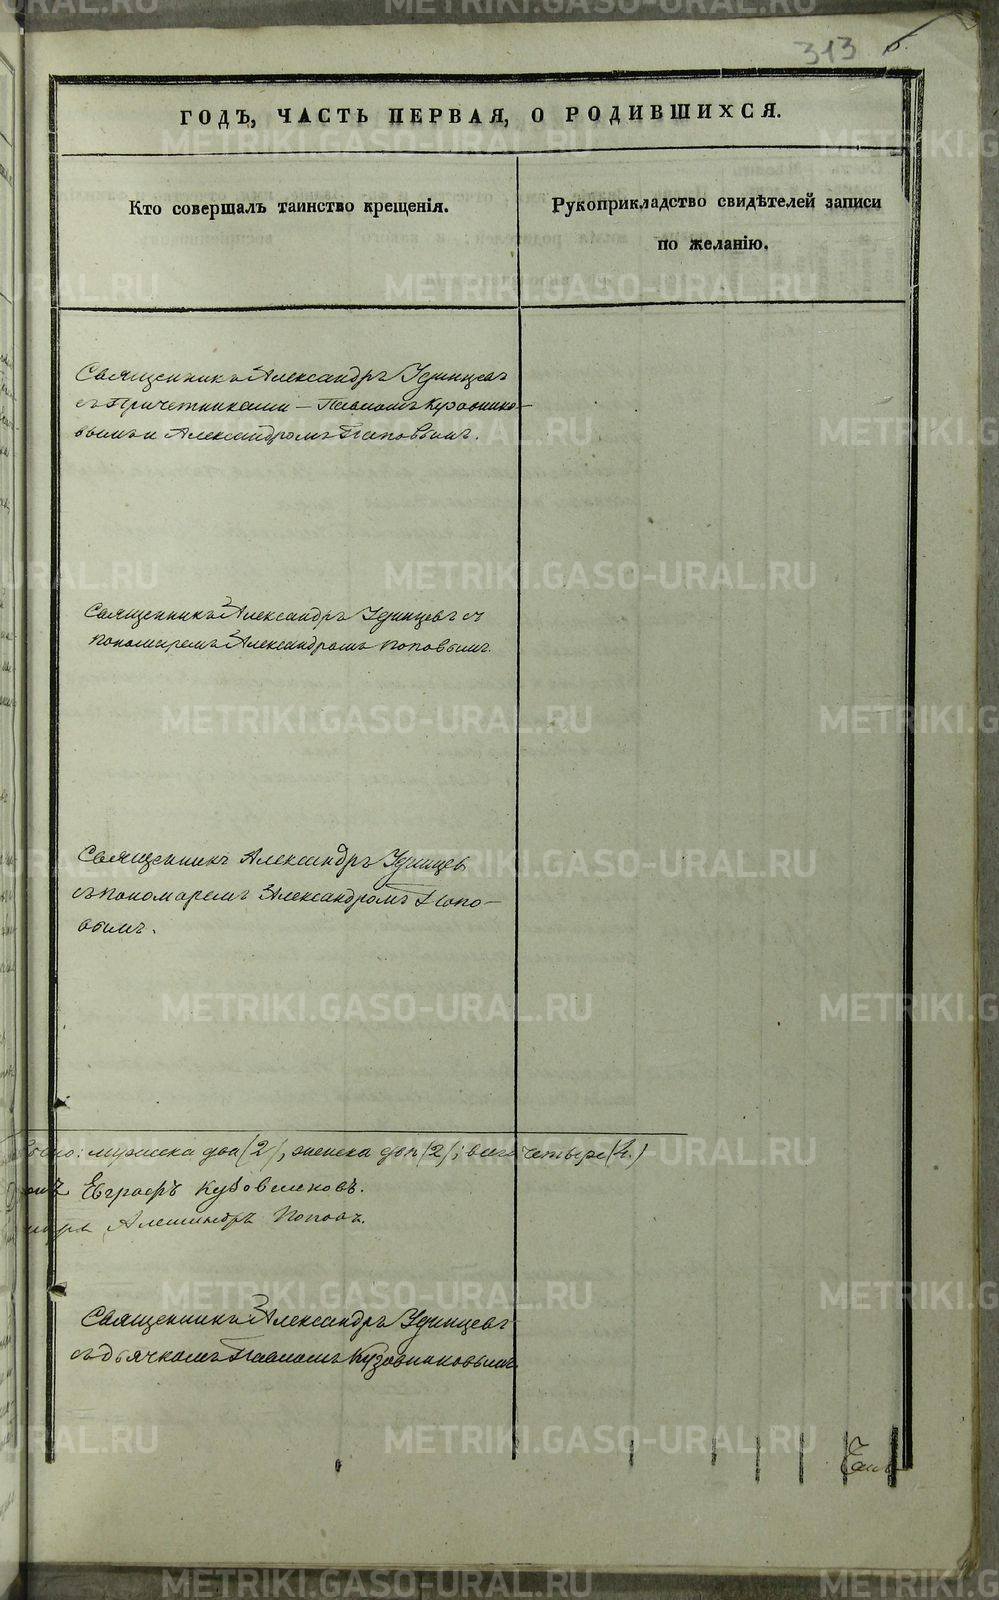 313
ГОДЪ, ЧАСТЬ ПЕРВАЯ, О РОДИВШИХСЯ.
Кто совершалъ таинство крещенія.
Рукоприкладство свидѣтелей записи
по желанію.
Священникъ Александръ Удинцевъ
съ Причетниками – Павломъ Кузовнико-
вымъ и Александромъ Поповымъ.
Священникъ Александръ Удинцевъ съ
пономаремъ Александромъ Поповымъ.
Священникъ Александръ Удинцевъ
съ пономаремъ Александромъ Попо-
вымъ.
мужеска два (2), женска двѣ (2); всего четыре (4.)
Евграфъ Кузовниковъ.
Александръ Поповъ.
Священникъ Александръ Удинцевъ
съ дьячкомъ Павломъ Кузовниковымъ.
METRIKI.GASO-URAL.RU